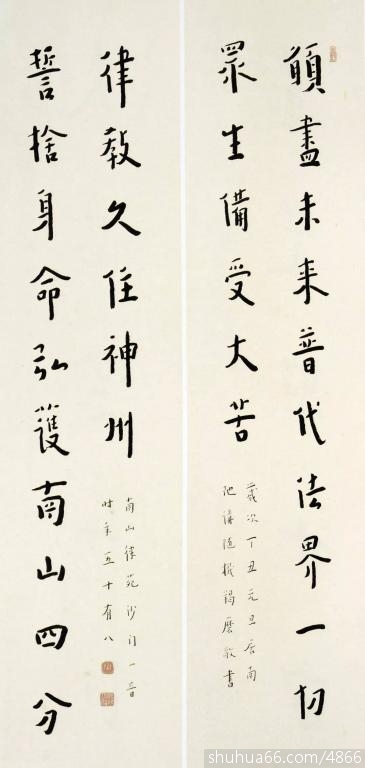 願盡未來普代法界一切
眾生備受大苦
歲次丁丑元旦南
陀講隨機羯磨敬書
誓捨身命弘護南山四分
律教久住神州
南山律苑沙門一音
時年五十有八
shuhua66.com/4866